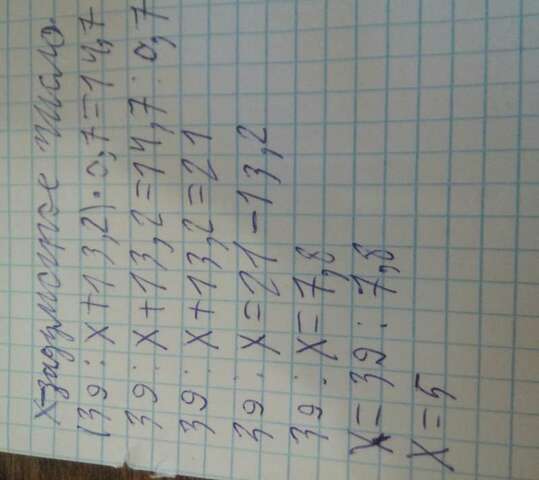 x-задуманое число
(39:x+13,2)·0,7=14,7
39:x+13,2=14,7:0,7
39:x+13,2=21
39:x=21-13,2
39:x=7,8
x=39:7,8
x=5